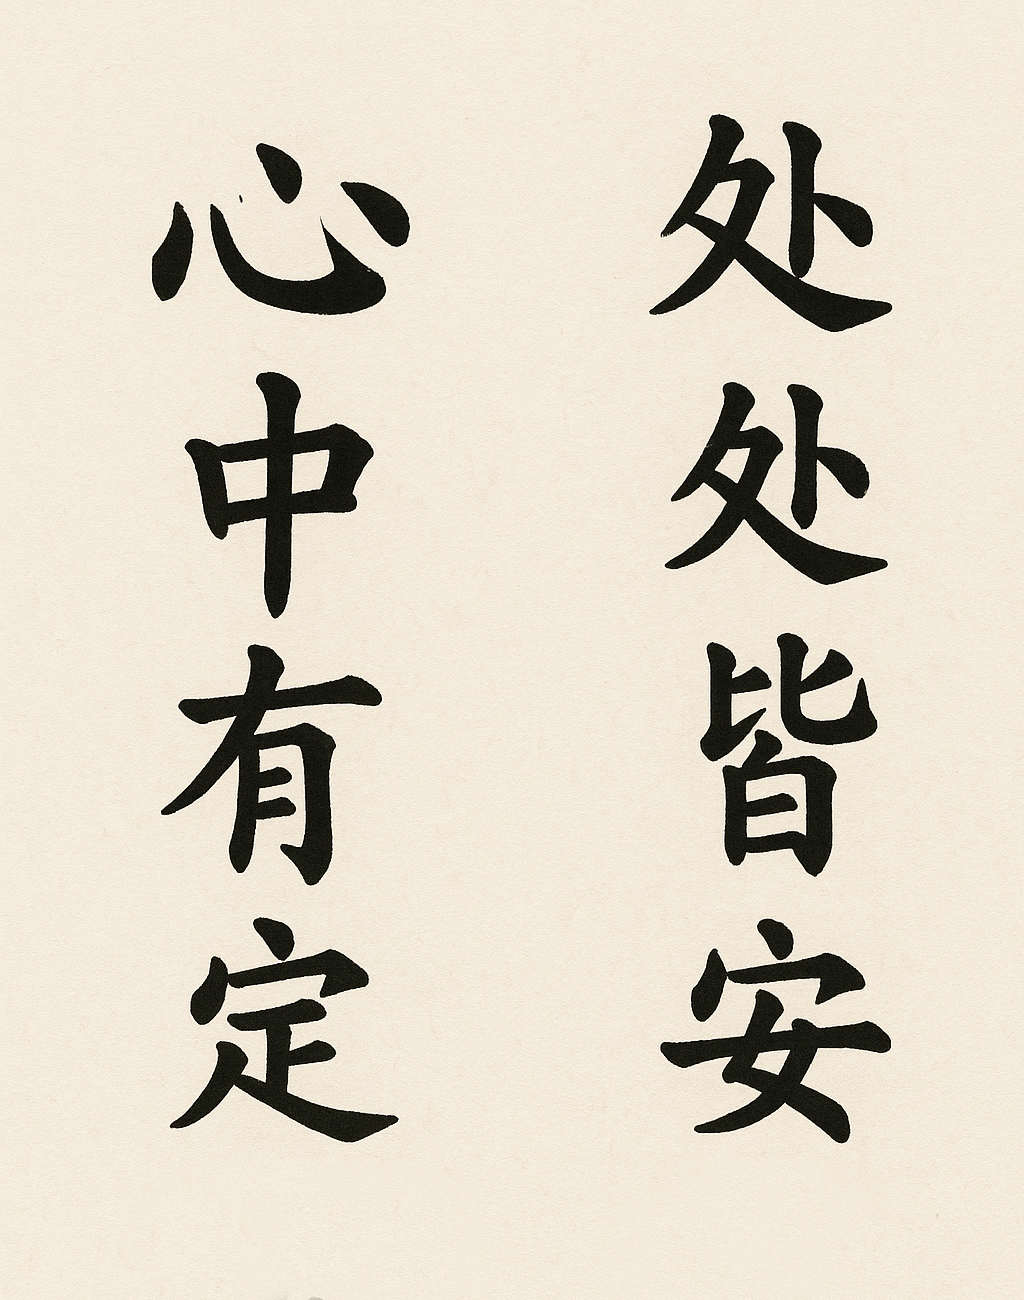 心中有定
处处皆安